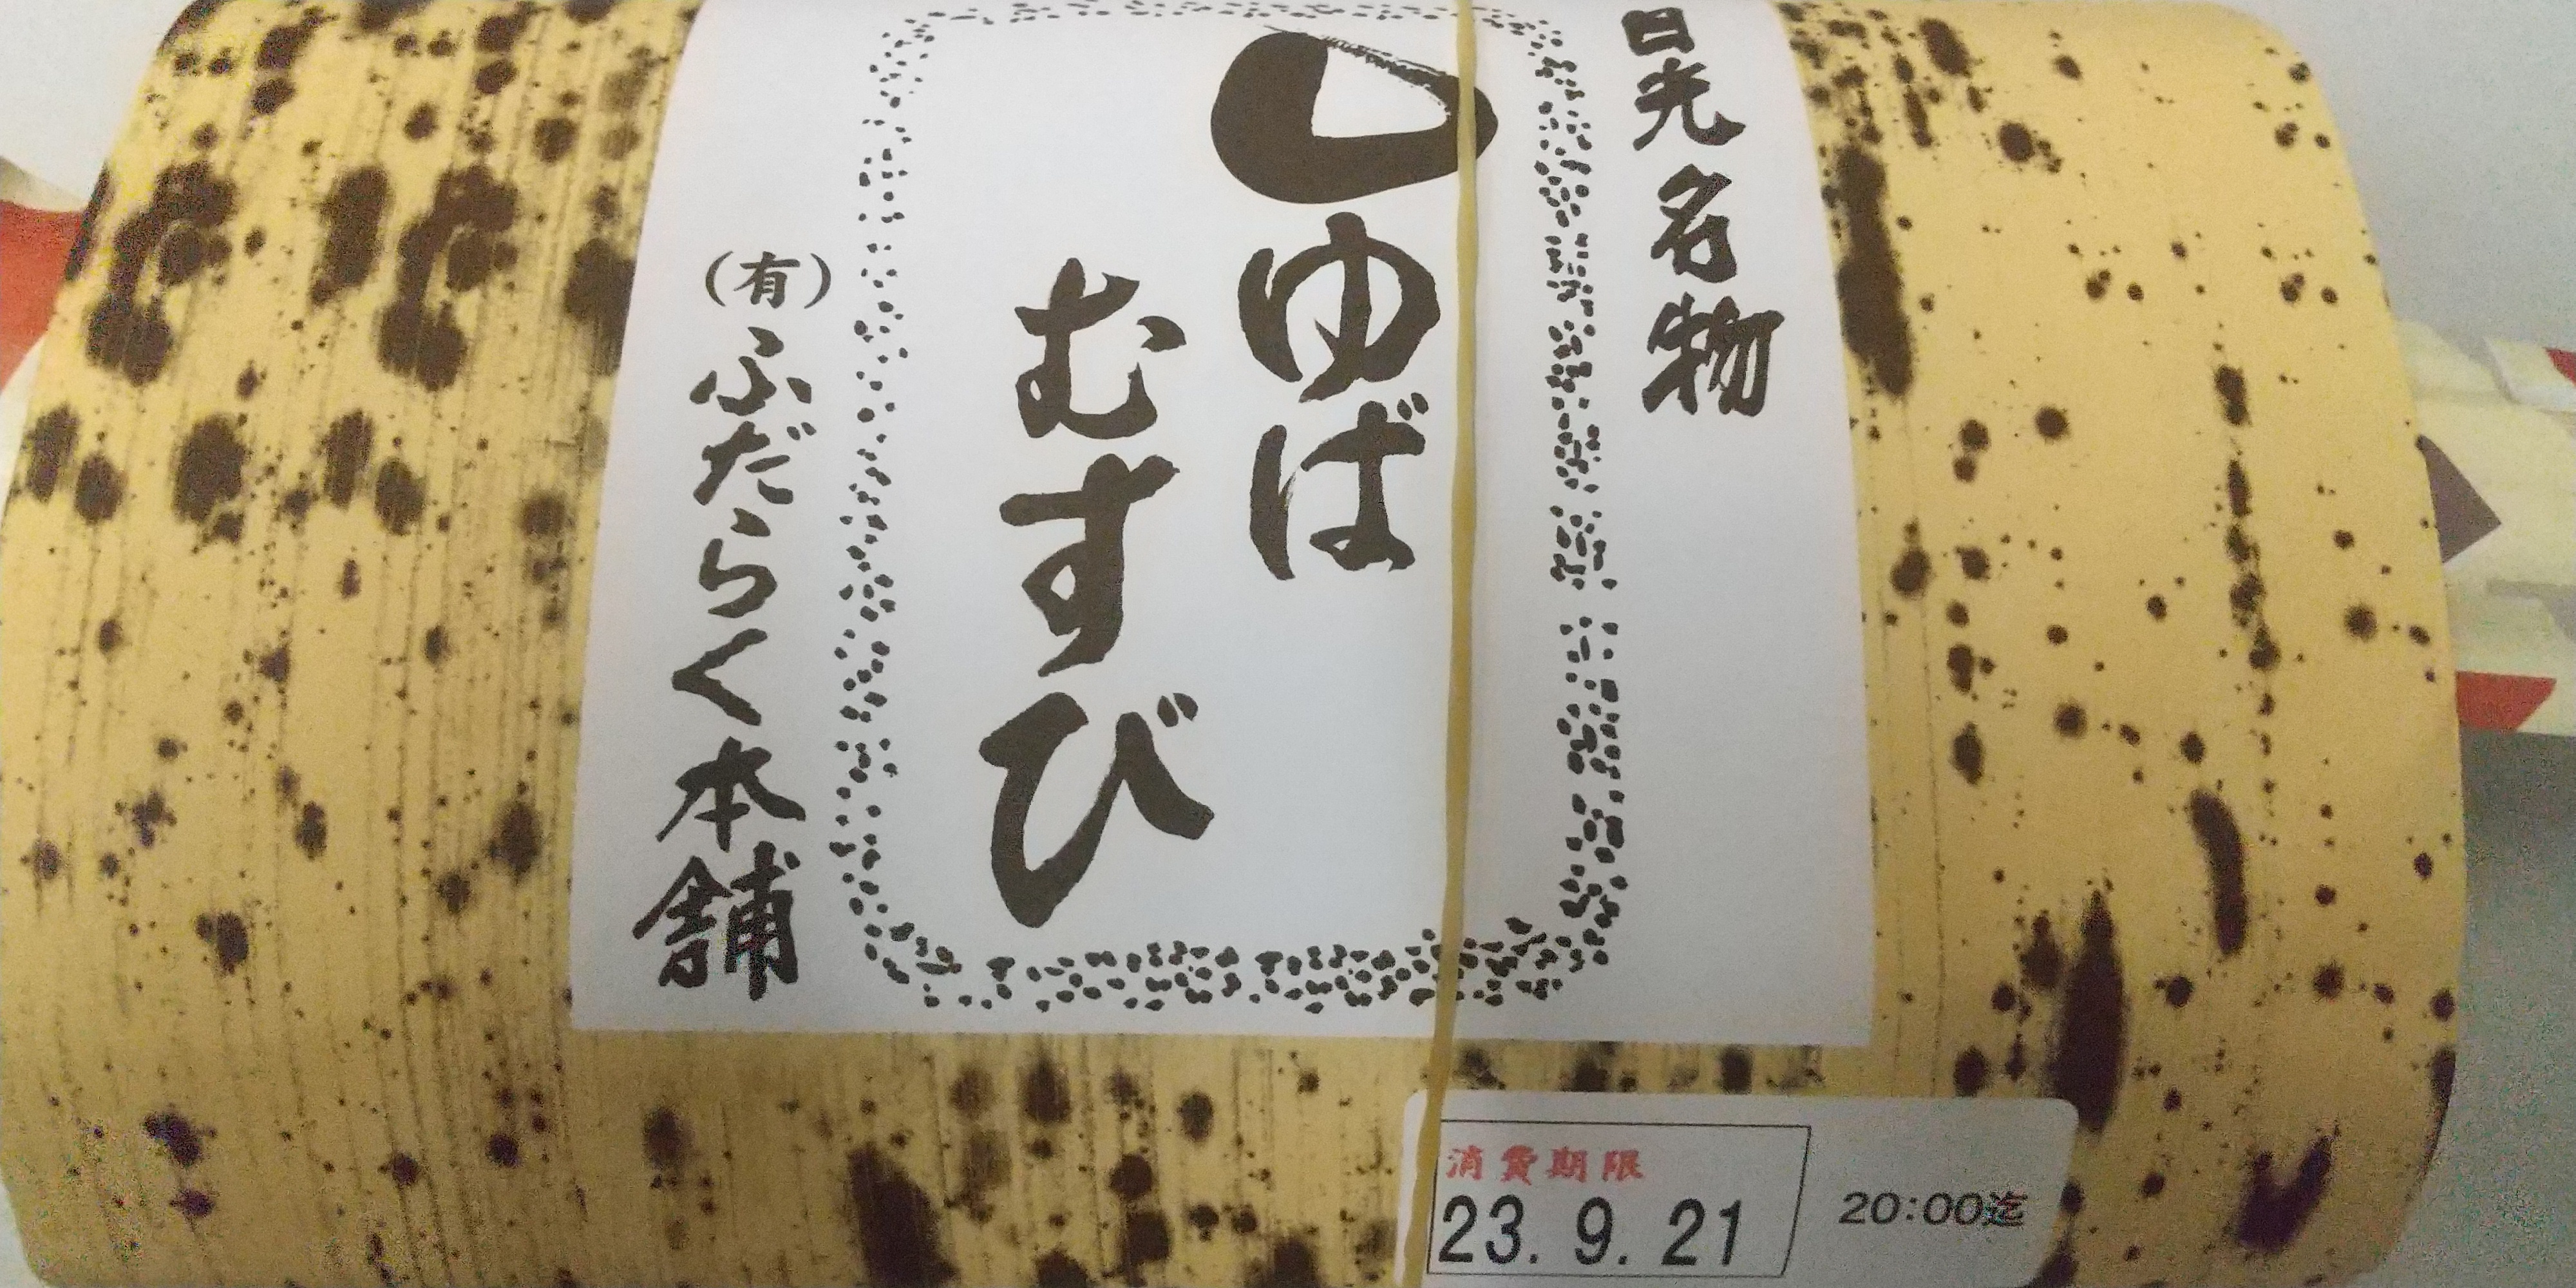 日光名物
ゆば
むすび
(有)ふだらく本舗
消費期限
23. 9. 21
20:00迄